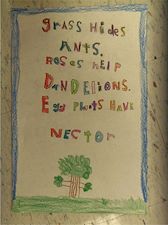 grass Hides
ANTS.
Roses HELP
DanDElions.
Egg plants HAVE
NECTOR